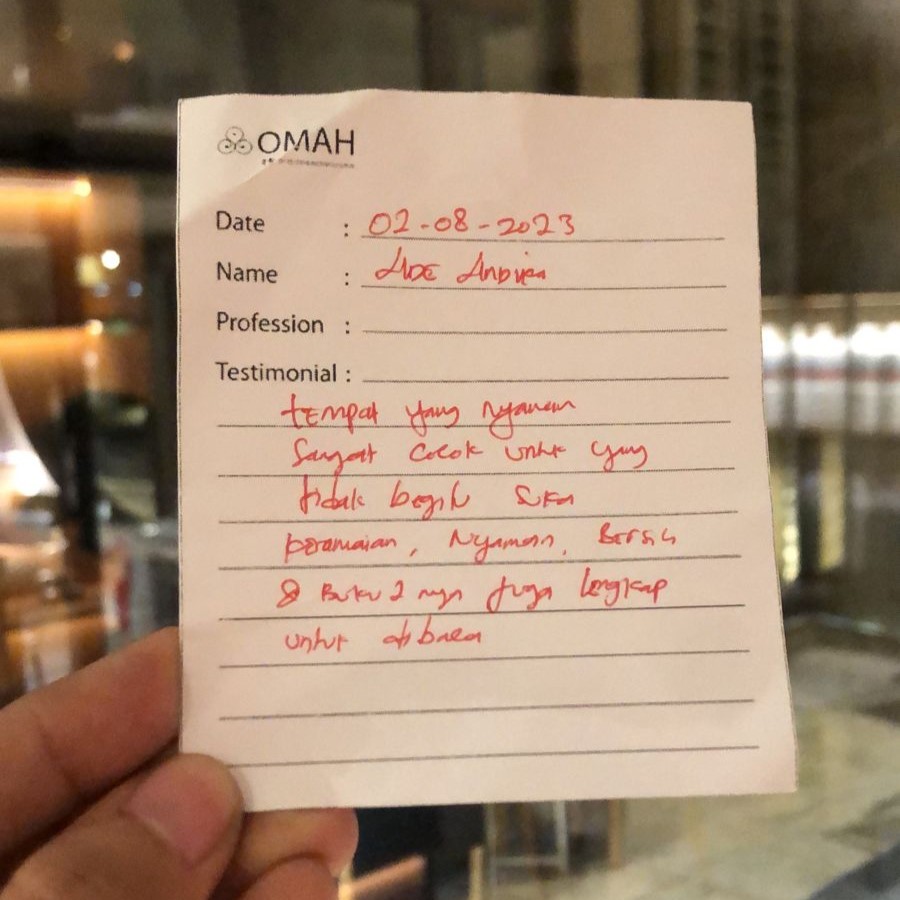 OMAH
Date : 02-08-2023
Name : ADE Andika
Profession :
Testimonial :
tempat yang nyaman
Sangat cocok untuk yang
tidak begitu suka
keramaian, Nyaman, Bersih
& Buku2 nya juga lengkap
untuk di baca